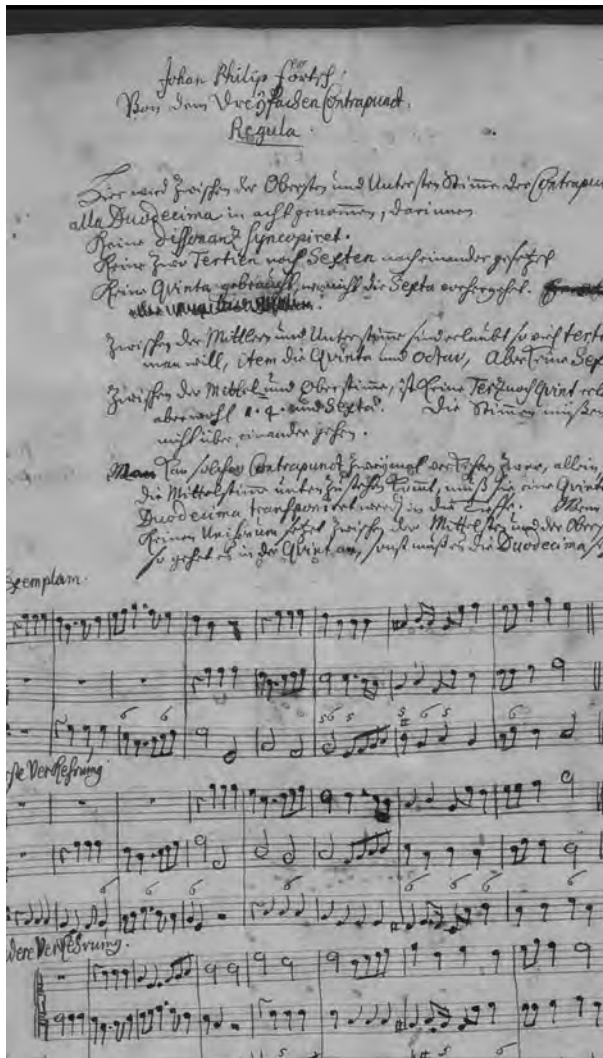 Johan Philip Förtsch.
Von dem Dreÿfachen Contrapunct.
Regula.
Hier wird zwischen der Obersten und Untersten Stimme der Contrapun
alla Duodecima in acht genommen, darinnen
Keine Dissonanz Syncopiret.
Keine zwo Tertien noch Sexten nach einander gesetzet
Keine Qvinta gebraucht, wo nicht die Sexta vorhergehet.
Zwischen der Mittlern und Unterstimme sind erlaubt so viel tertie
man will, item die Qvinta und Octav, Aber keine Sex
Zwischen der Mittel und Oberstimme, ist keine Terz noch Qvint erl
aber wohl 8. 4. und Sexta. Die Stimmen müßen
nicht über einander gehen.
Man kan solchen Contrapunct zweÿmal verkehren zwar, allein
die Mittelstimme unten zu stehen kommt, muß sie eine Qvinta
Duodecima transponiret werden in die Tieffe. Wenn
keinen Unisonum setzet zwischen der Mittelsten und der Obers
so gehet es in der Qvint an, sonst muß es die Duodecima s
Exemplum.
6 6 56 5 5 6 5 6
ste Verkehrung
6 6 6 6 6 6 6 6
dere Verkehrung.
5 6